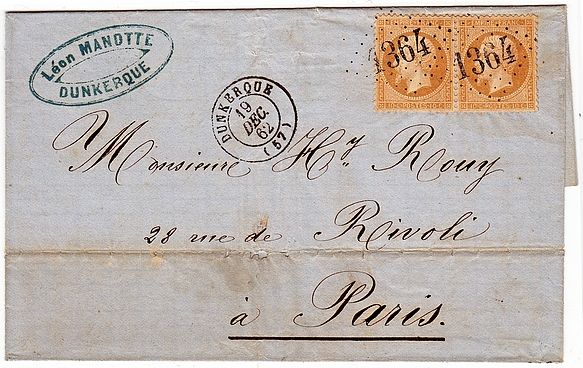 Léon MANOTTE
DUNKERQUE
1364 1364
DUNKERQUE
19
DEC.
62
(57)
Monsieur Hy Rouy
28 rue de Rivoli
à Paris.